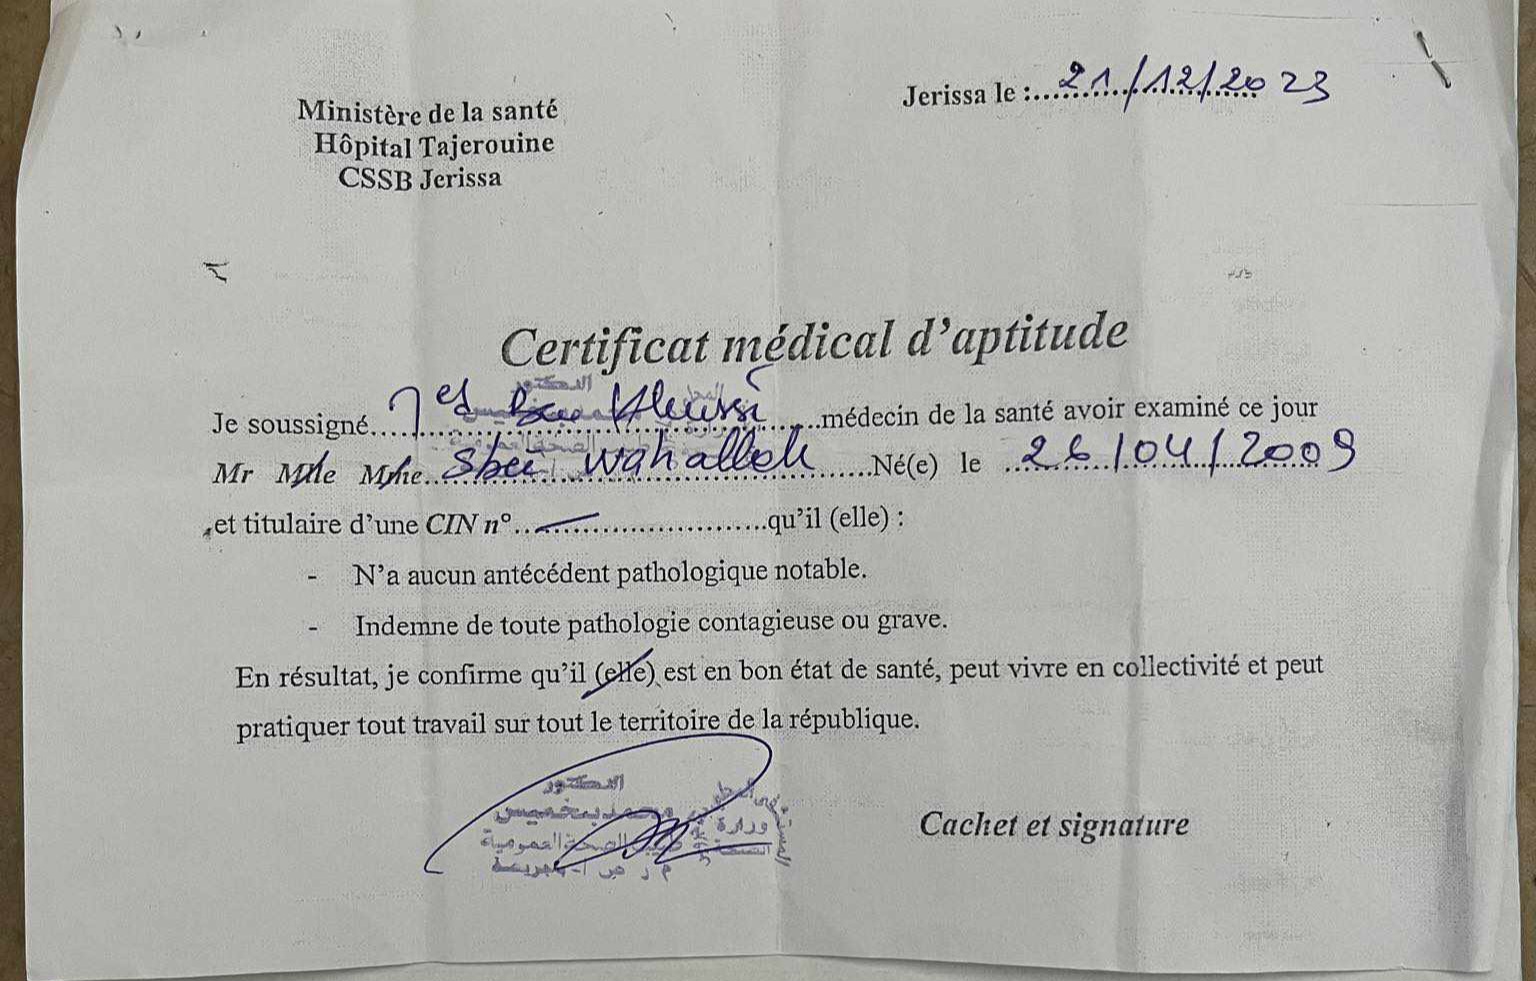 Ministère de la santé
Hôpital Tajerouine
CSSB Jerissa
Jerissa le :....21/12/2023
Certificat médical d'aptitude
Je soussigné........médecin de la santé avoir examiné ce jour
Mr Mlle Mme..sbei wahalleh......Né(e) le ...26/04/2009
et titulaire d'une CIN n°...—..................qu'il (elle) :
- N'a aucun antécédent pathologique notable.
- Indemne de toute pathologie contagieuse ou grave.
En résultat, je confirme qu'il (elle) est en bon état de santé, peut vivre en collectivité et peut
pratiquer tout travail sur tout le territoire de la république.
الدكتور
محمد بخميس
طبيب الصحة العمومية
وزارة
الصحة
Cachet et signature